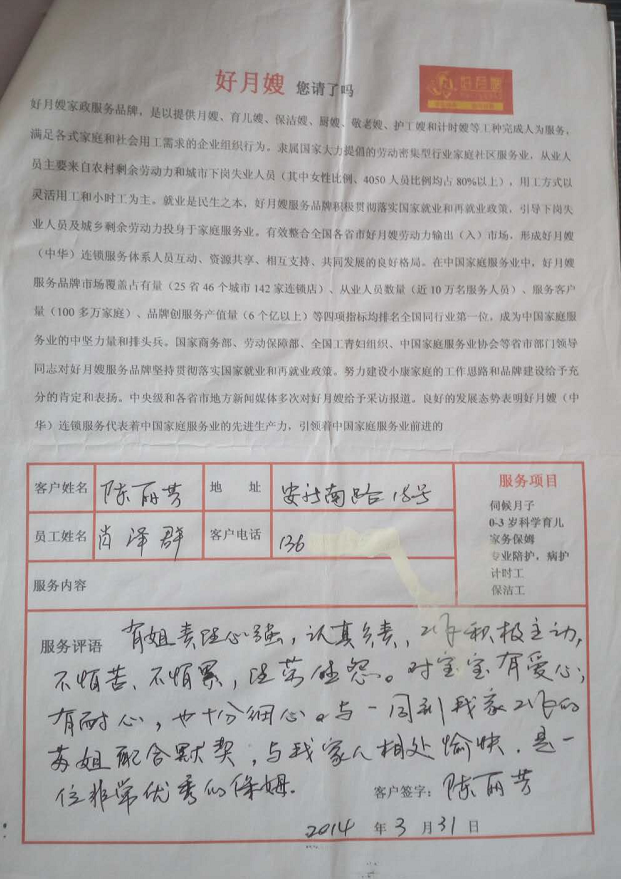 好月嫂 您请了吗
好月嫂
好月嫂家政服务品牌，是以提供月嫂、育儿嫂、保洁嫂、厨嫂、敬老嫂、护工嫂和计时嫂等工种完成人为服务，
满足各式家庭和社会用工需求的企业组织行为。隶属国家大力提倡的劳动密集型行业家庭社区服务业，从业人
员主要来自农村剩余劳动力和城市下岗失业人员（其中女性比例、4050人员比例均占80%以上），用工方式以
灵活用工和小时工为主。就业是民生之本，好月嫂服务品牌积极贯彻落实国家就业和再就业政策，引导下岗失
业人员及城乡剩余劳动力投身于家庭服务业。有效整合全国各省市好月嫂劳动力输出（入）市场，形成好月嫂
（中华）连锁服务体系人员互动、资源共享、相互支持、共同发展的良好格局。在中国家庭服务业中，好月嫂
服务品牌市场覆盖占有量（25省46个城市142家连锁店）、从业人员数量（近10万名服务人员）、服务客户
量（100多万家庭）、品牌创服务产值量（6个亿以上）等四项指标均排名全国同行业第一位，成为中国家庭服
务业的中坚力量和排头兵。国家商务部、劳动保障部、全国工青妇组织、中国家庭服务业协会等省市部门领导
同志对好月嫂服务品牌坚持贯彻落实国家就业和再就业政策。努力建设小康家庭的工作思路和品牌建设给予充
分的肯定和表扬。中央级和各省市地方新闻媒体多次对好月嫂给予采访报道。良好的发展态势表明好月嫂（中
华）连锁服务代表着中国家庭服务业的先进生产力，引领着中国家庭服务业前进的
客户姓名 陈丽芳 地 址 安社南路15号
员工姓名 肖泽群 客户电话 136
服务内容
服务项目
伺候月子
0-3岁科学育儿
家务保姆
专业陪护，病护
计时工
保洁工
服务评语 肖姐责任心强，认真负责，工作积极主动，
不怕苦、不怕累，任劳任怨。对宝宝有爱心，
有耐心，也十分细心。与一同到我家工作的
苏姐配合默契，与我家人相处愉快，是一
位非常优秀的保姆.
客户签字：陈丽芳
2014 年 3 月 31 日